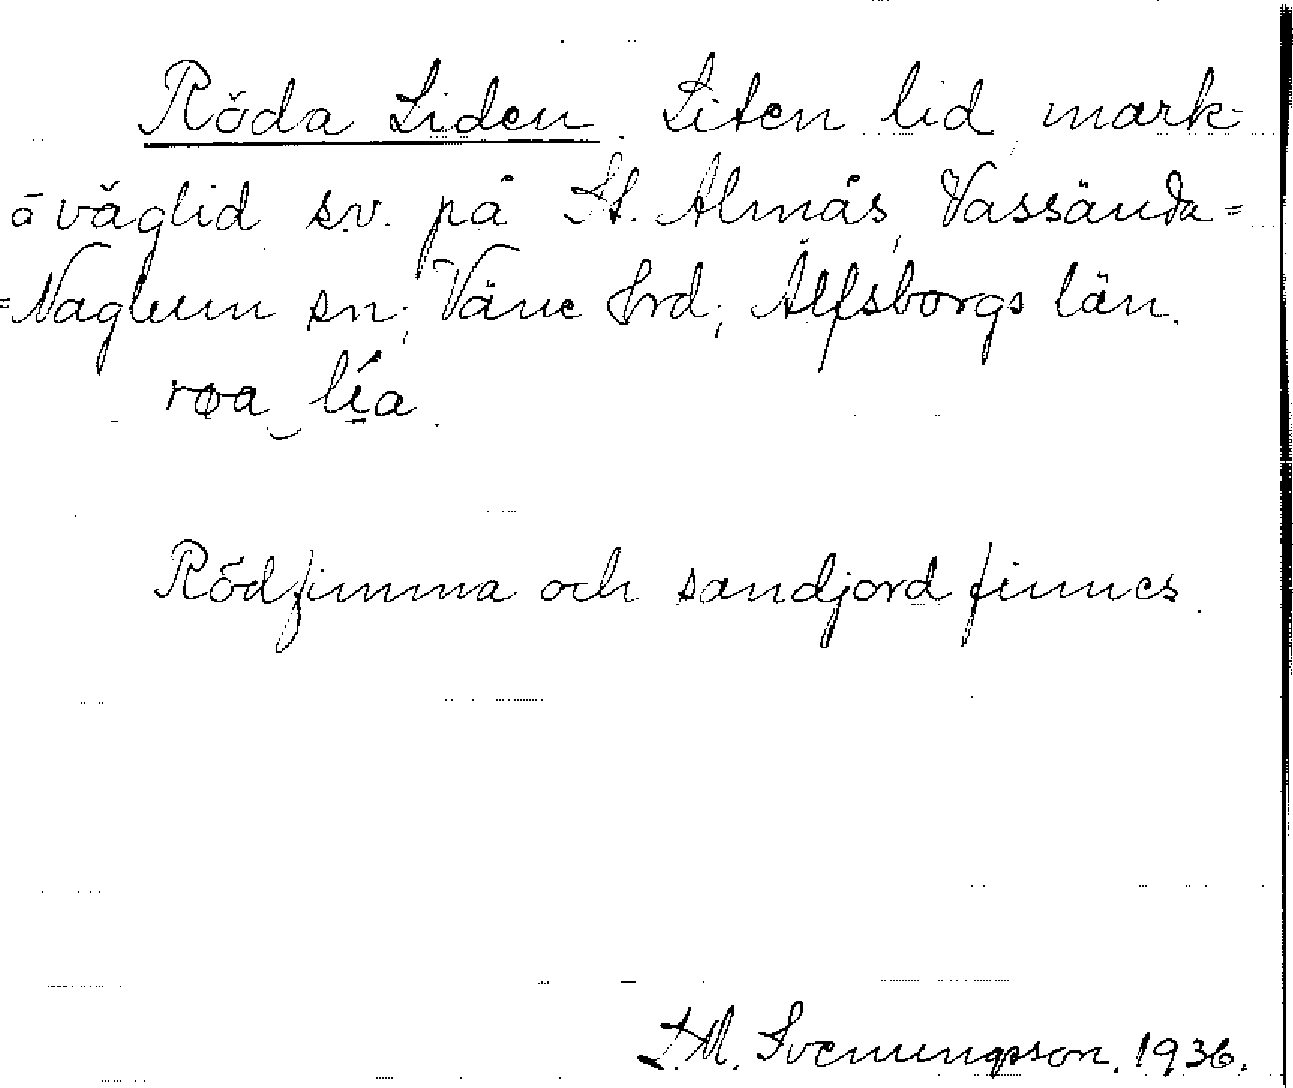 Röda Liden. Liten lid, mark-
å väglid s.v. på St. Almås, Vassända-
-Naglum sn; Väne hrd; Älfsborgs län.
røa lía.
Rödfimma och sandjord finnes.
S.M. Svenungsson. 1936.